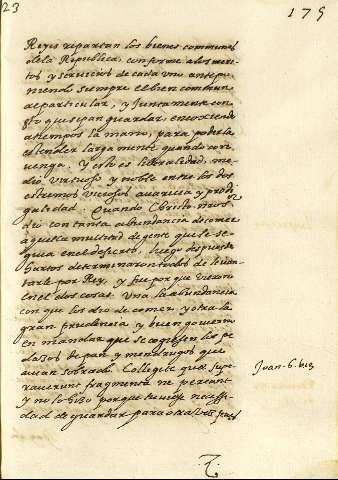 23
175
Reyes repartan los bienes communes
de la Republica, conforme a los meri-
tos y servicios de cada uno antepo-
niendo siempre el bien commun
al particular, y juntamente con
esto que sepan guardar, encoxiendo
a tiempos la mano, para poderla
estender largamente quando con-
venga. Y esto es liberalidad, me-
dio virtuoso y noble entre los dos
estremos viciosos avaricia y prodi-
galidad. Quando Christo nro sr
dio con tanta abundancia de comer
a aquella multitud de gente que le se-
guia en el desierto, luego despues de
hartos determinaron todos de levan-
tarle por Rey, y fue por que vieron
en el dos cosas. Una la abundancia
con que les dio de comer, y otra la
gran prudencia y buen govierno
en mandar que se cogiesen los pe-
dasos de pan y mendrugos que
avian sobrado. Collegite quæ supe-
raverunt fragmenta ne pereant
y no lo hizo porque tuviese necessi-
dad de guardar para otra
Joan. 6.